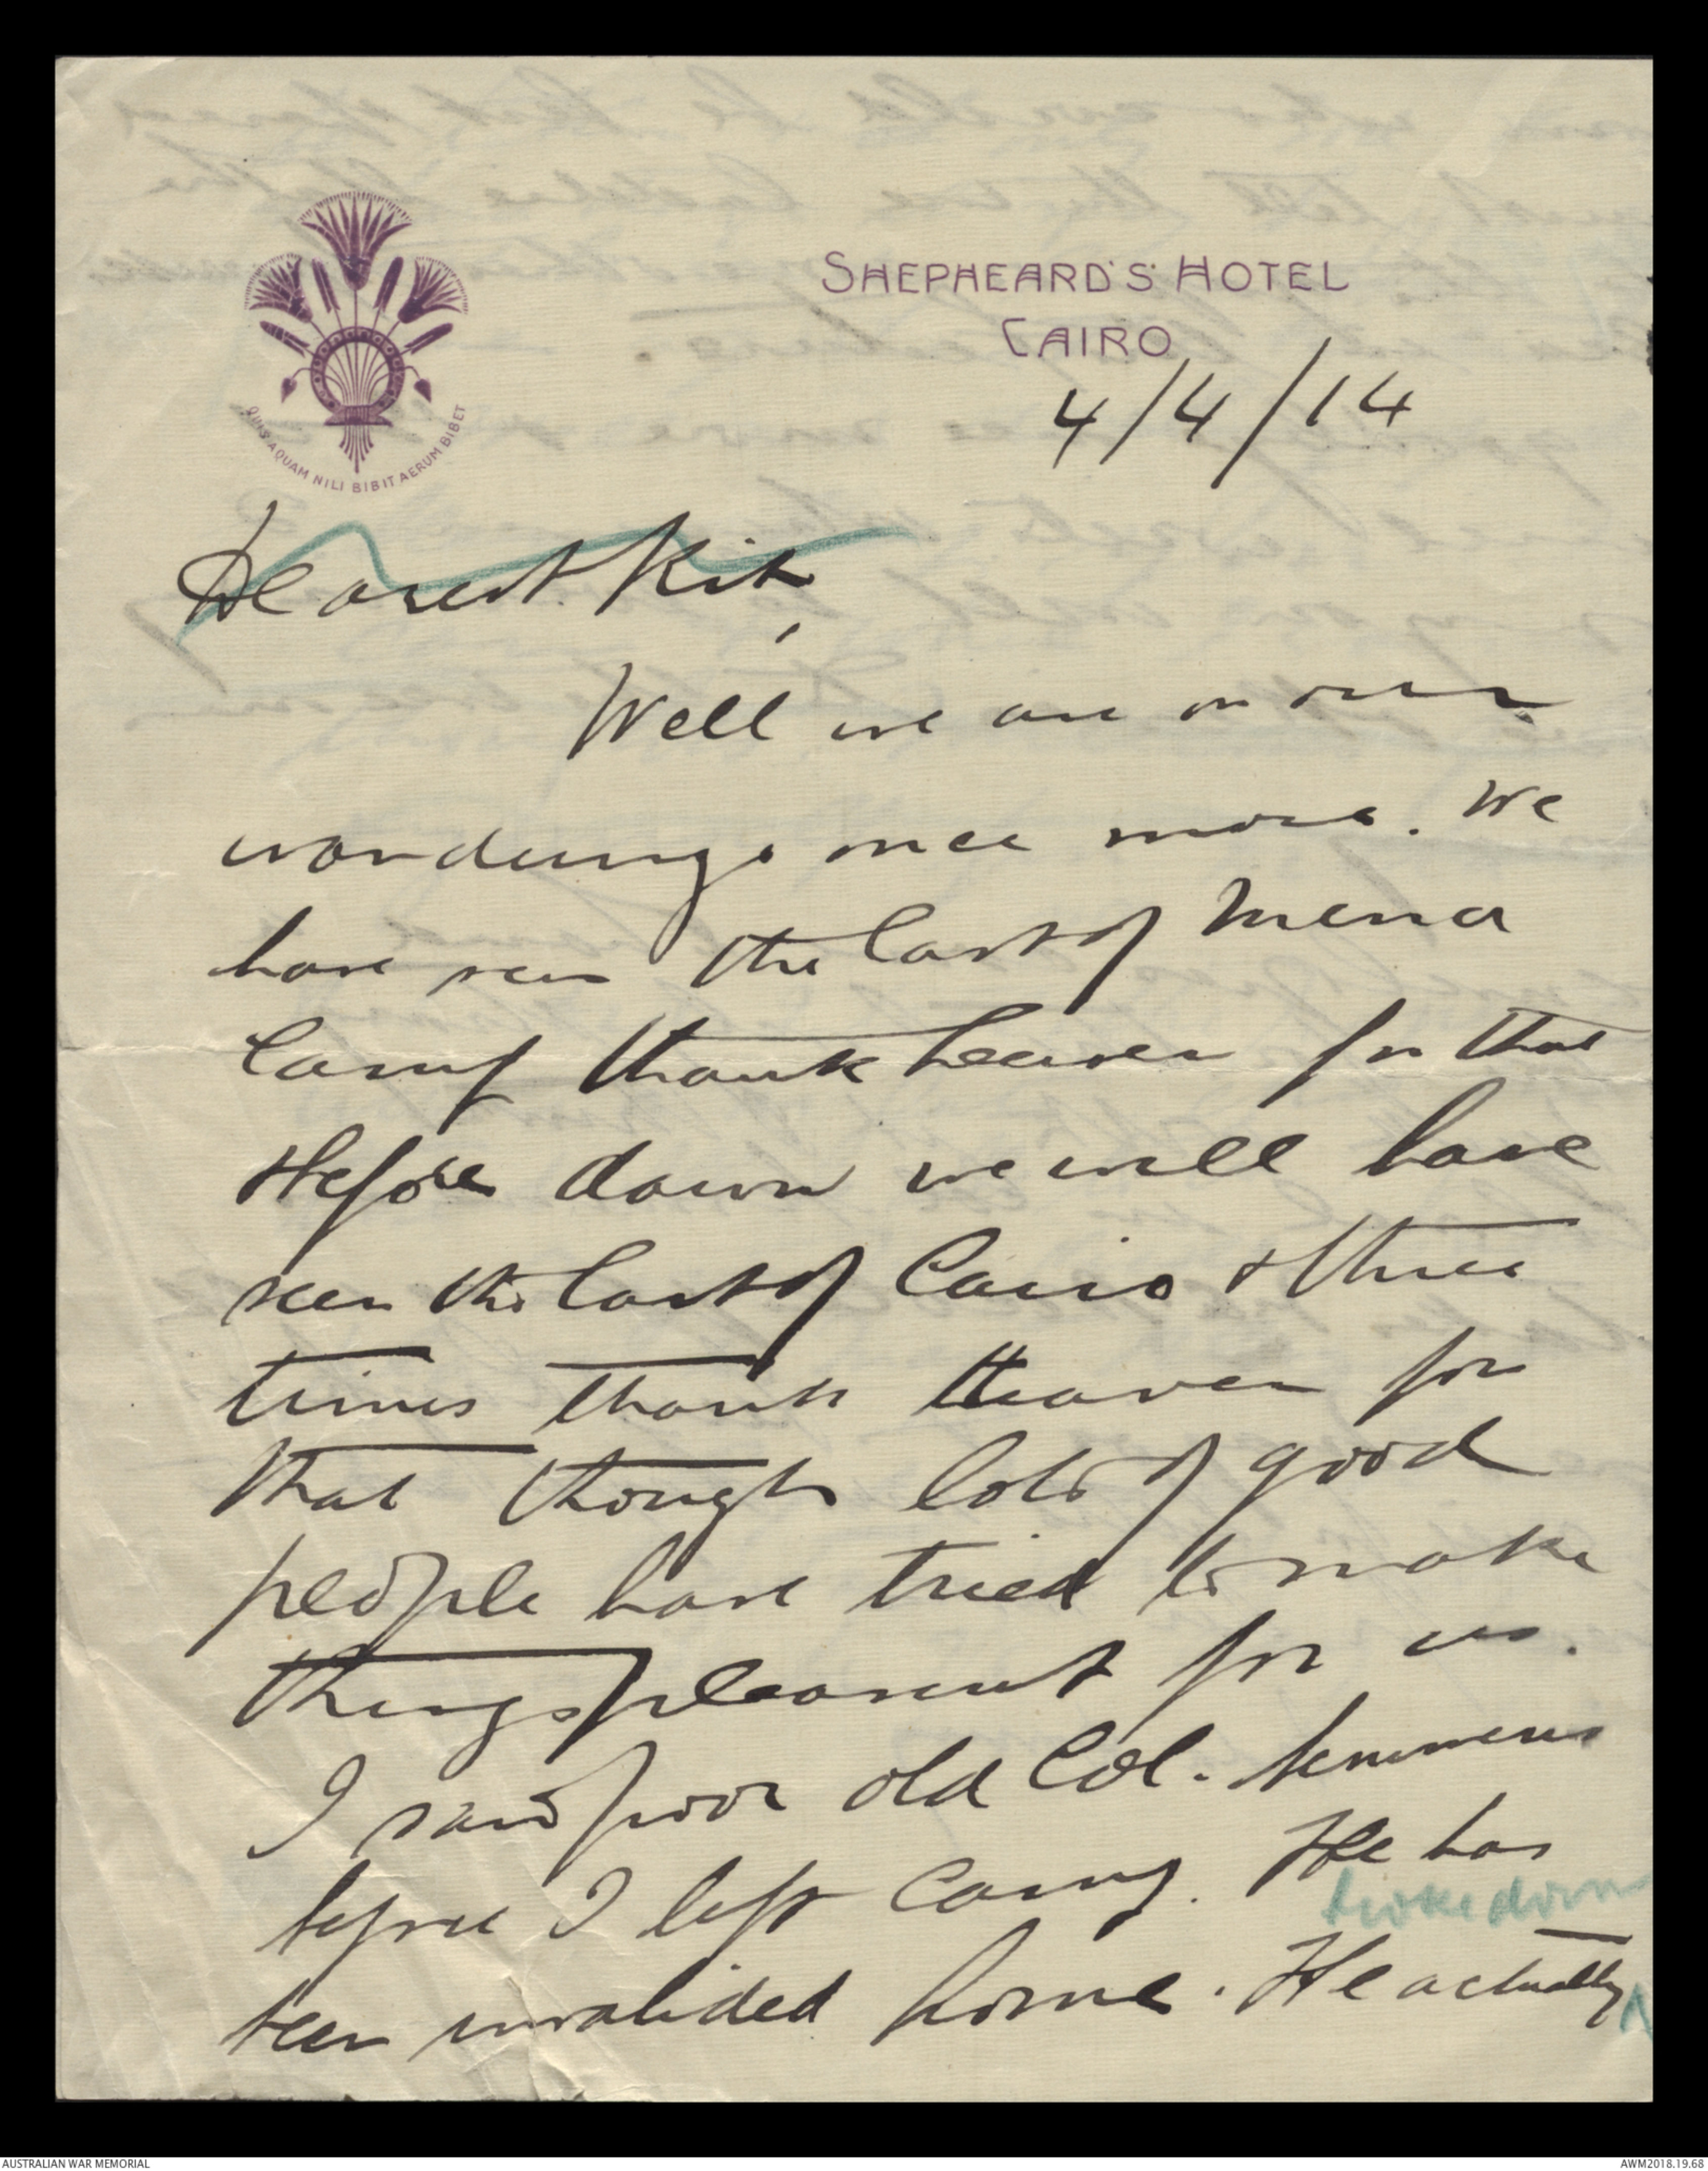 SHEPHEARD'S HOTEL
CAIRO
QUIS AQUAM NILI BIBIT AERUM BIBET
4/4/14
Dearest Kit,
Well we are on our
wanderings once more. We
have seen the last of Mena
Camp thank heaven for that
& before dawn we will have
seen the last of Cairo & three
times thank Heaven for
that though lots of good
people have tried to make
things pleasant for us.
I saw poor old Col. Semmens
before I left Camp. He has
broke down
been invalided home. He actually ^
AUSTRALIAN WAR MEMORIAL
AWM2018.19.68